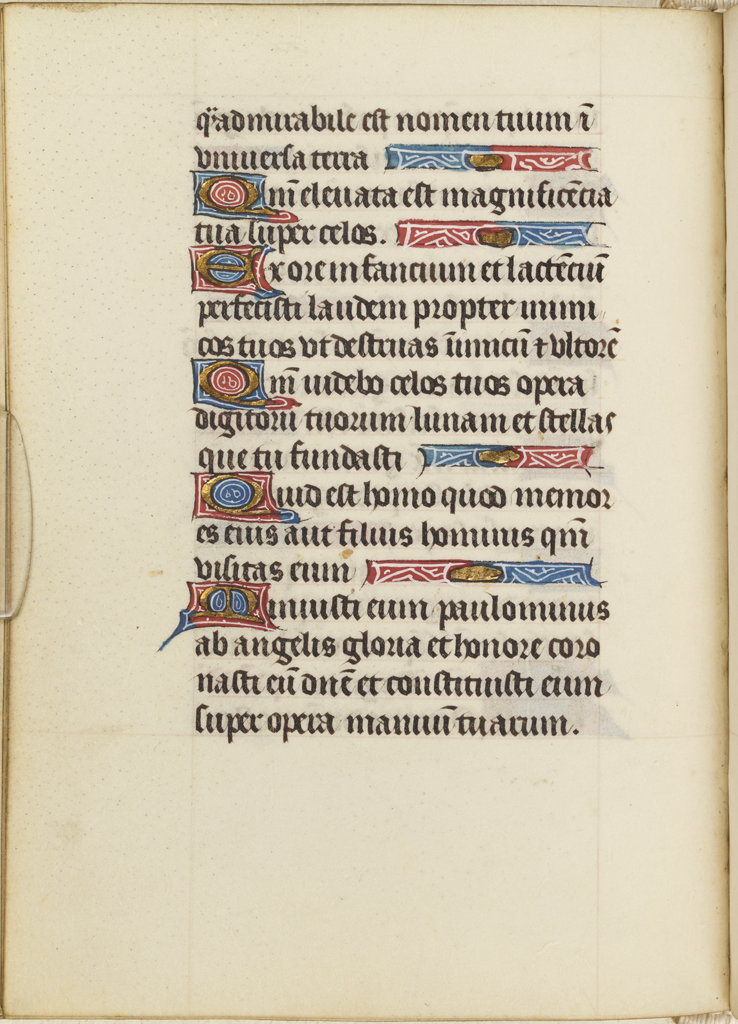 q̈ admirabile est nomen tuum ī
vniuersa terra
Qm̄ eleuata est magnificēcia
tua super celos.
Ex ore infancium et lactēciū
perfecisti laudem propter inimi
cos tuos vt destruas īimicū ⁊ vltorē
Qm̄ uidebo celos tuos opera
digitorū tuorum lunam et stellas
que tu fundasti
Quid est homo quod memor
es eius aut filius hominis qm̄
visitas eum
Minuisti eum paulominus
ab angelis gloria et honore coro
nasti eū dn̄e et constituisti eum
super opera manuū tuarum.